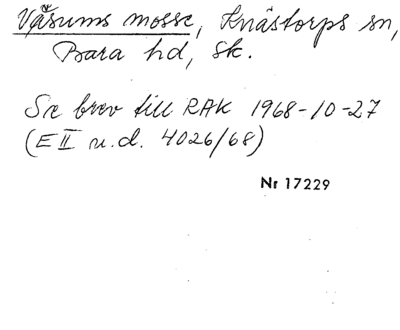 Våsums mosse, Knästorps sn,
Bara hd, Sk.
Se brev till RAK 1968-10-27
(E II u.d. 4026/68)
Nr 17229